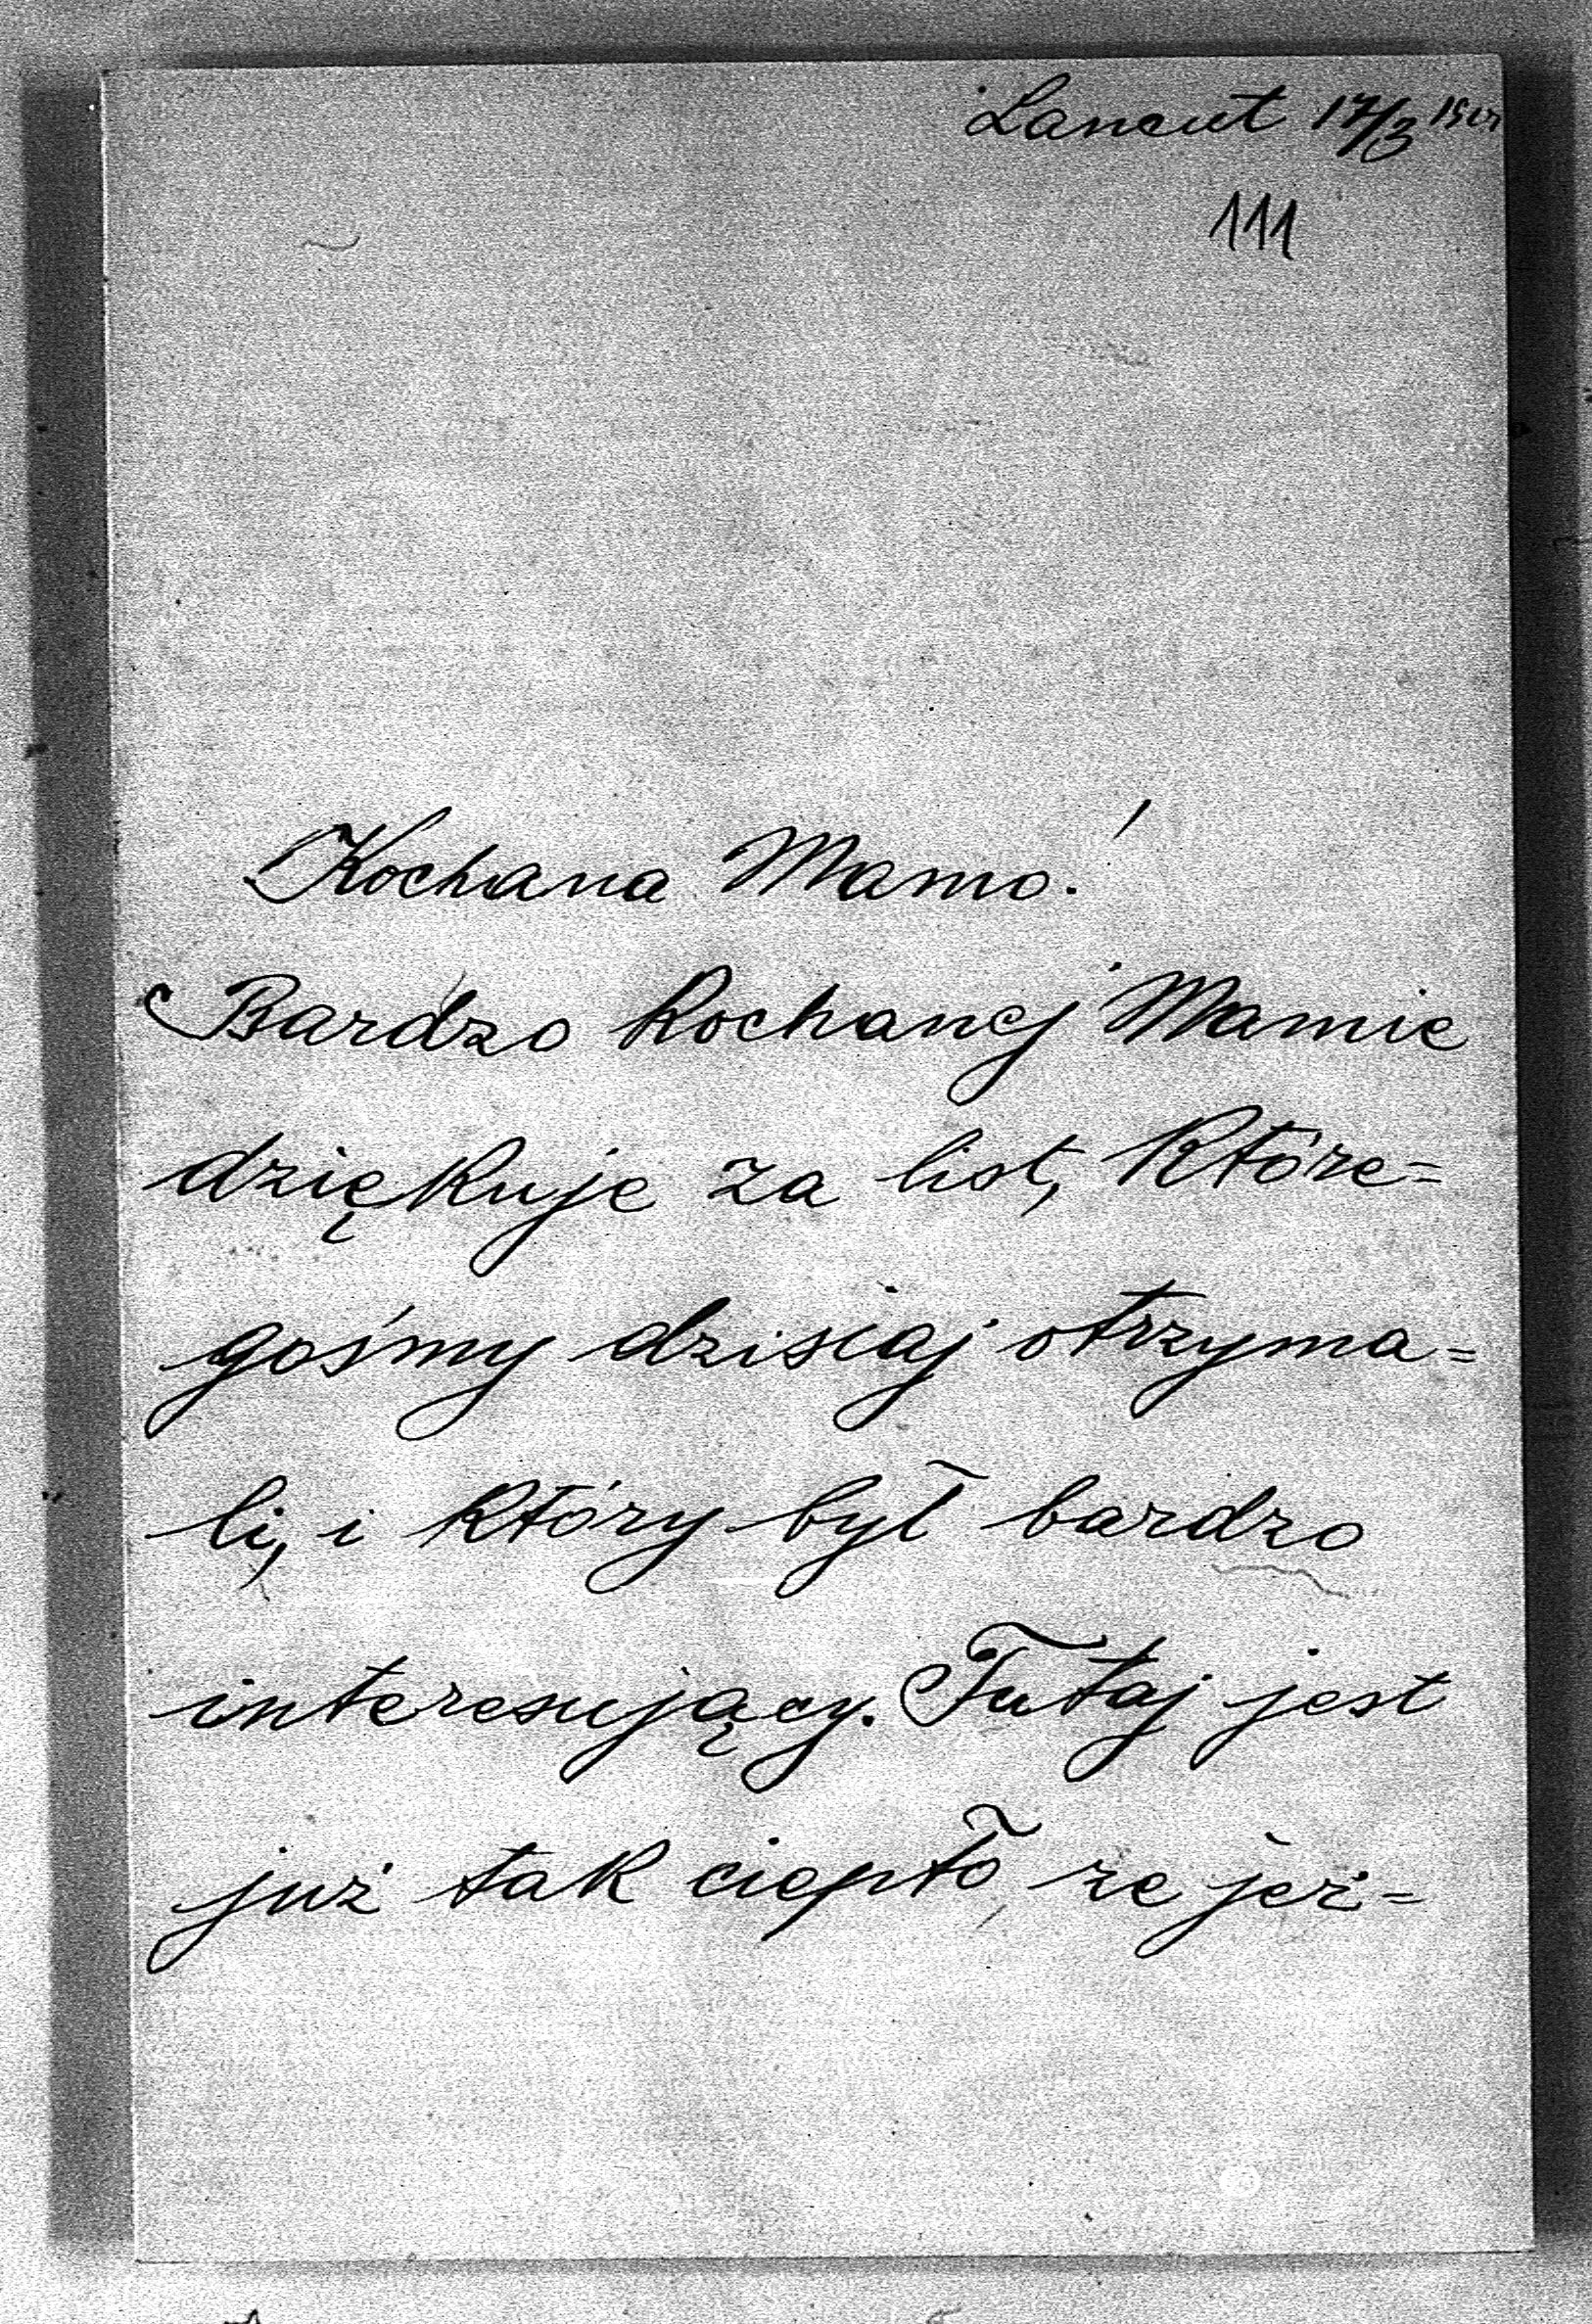 Lancut 17/3
111
Kochana Mamo!
Bardzo kochanej Mamie
dziękuje za list, które=
gośmy dzisiaj otrzyma=
li, i który był bardzo
interesujący. Tutaj jest
już tak ciepło, ze jeż=